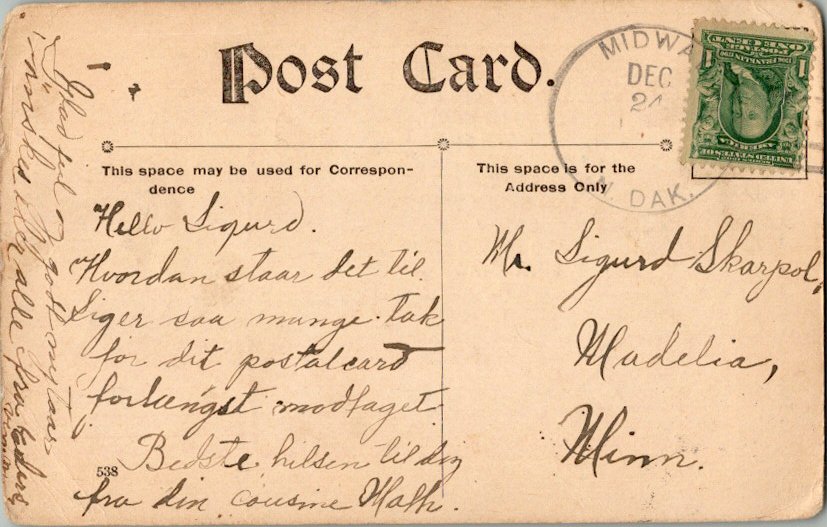 Post Card.
MIDWA
DEC
24
N. DAK.
POSTAGE
ONE CENT
1 1
FRANKLIN
AMERICA
UNITED STATES OF
This space may be used for Correspon-
dence
This space is for the
Address Only
Hello Sigurd.
Hvordan staar det til.
Siger saa mange tak
for dit postalcard
forlængst modtaget.
Bedste hilsen til dig
fra din cousine Math.
538
Glad jul og godt nytaar
önskes der alle fra
Mr. Sigurd Skarpol,
Madelia,
Minn.